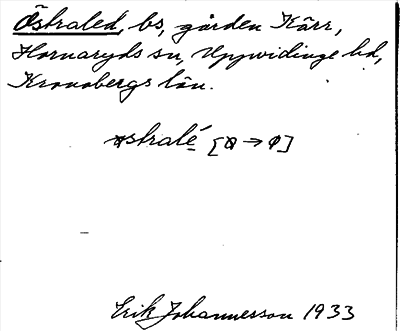 Östraled, bs, gården Kärr,
Hornaryds sn, Uppvidinge hd,
Kronobergs län.
østralé [ɷ → φ]
Erik Johannesson 1933